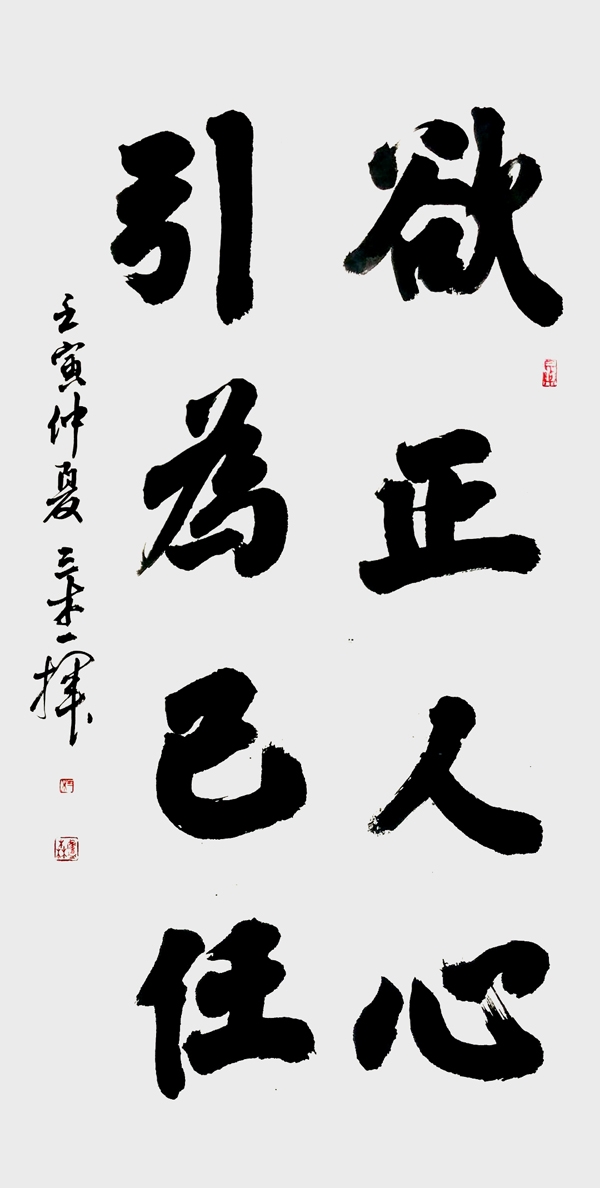 欲正人心
引為己任
壬寅仲夏三木一揮